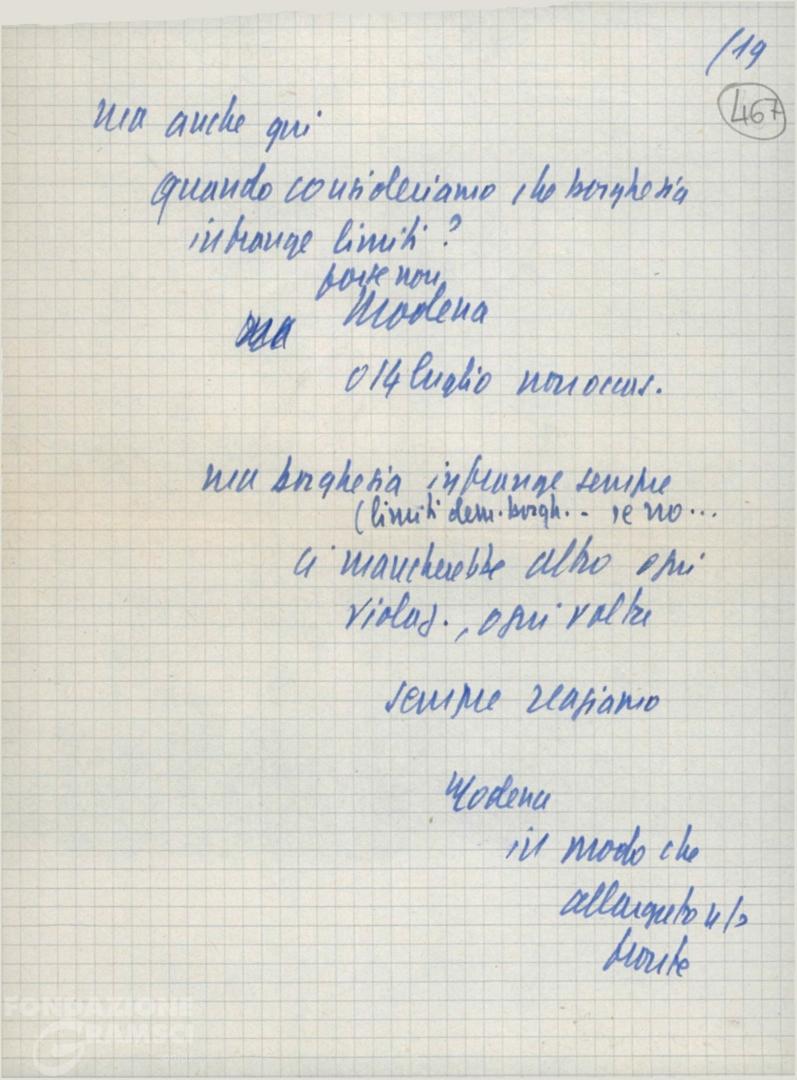 /19
467
ma anche qui
quando consideriamo che borghesia
infrange limiti?
forse non
ma Modena
o 14 luglio non occas.
ma borghesia infrange sempre
(limiti dem. borgh. - se no...
ci mancherebbe altro ogni
violaz., ogni volta
sempre reagiamo
Modena
in modo che
allargato n/s
fronte
FONDAZIONE
GRAMSCI